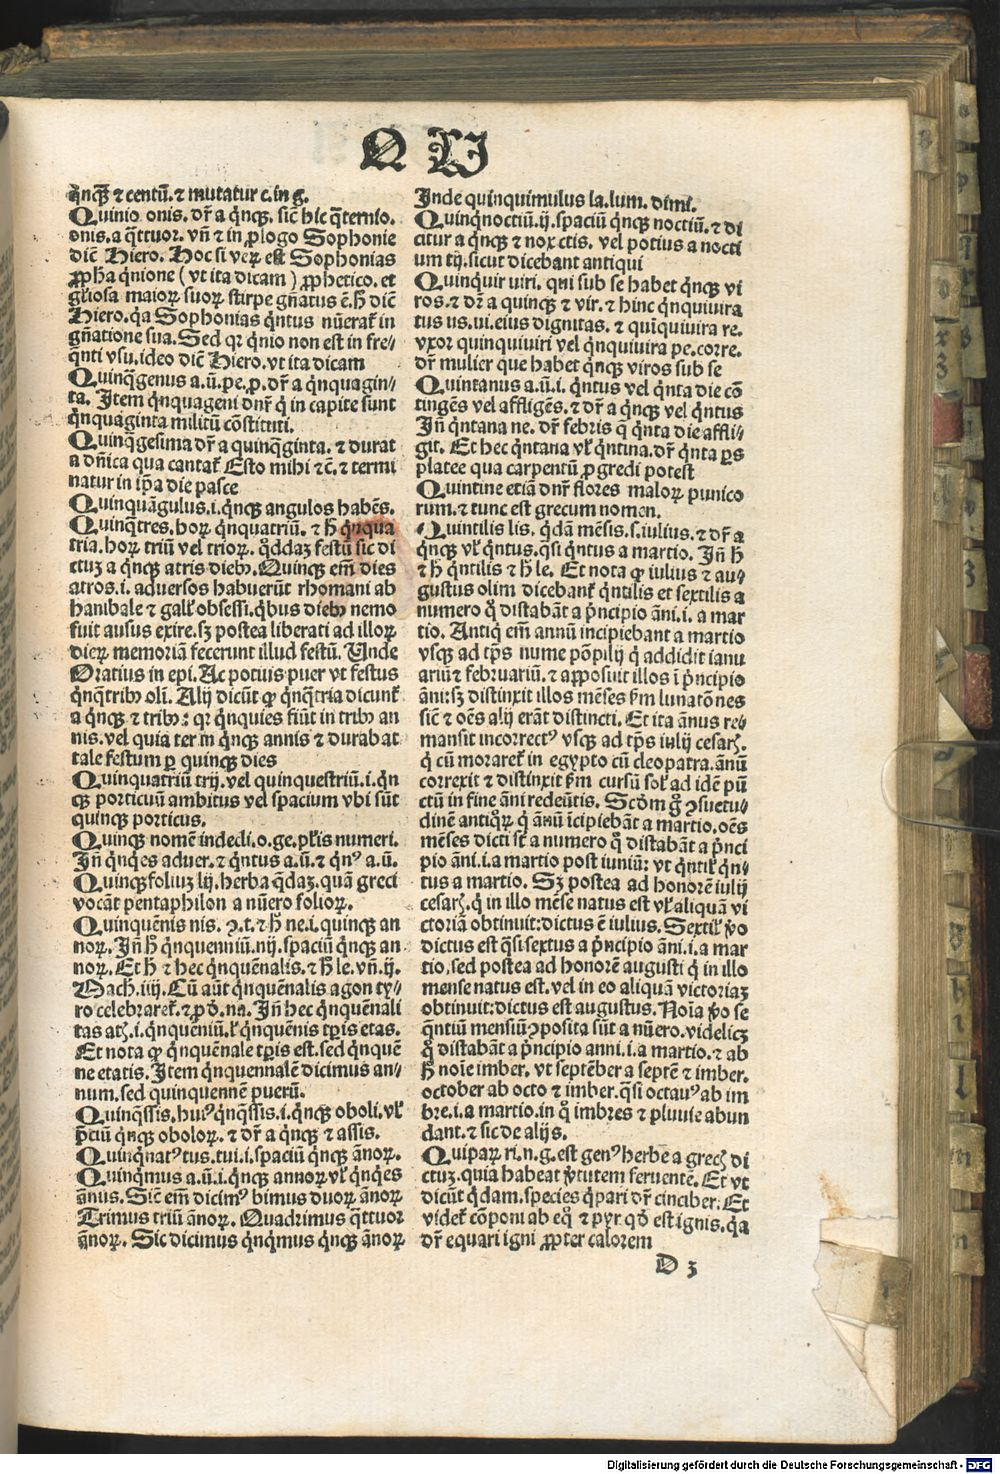 Q UI
q̇nqꝫ ⁊ centũ. ⁊ mutatur c. in g.
Quinio onis. dr̃ a q̇nqꝫ. sic̃ hic q̃ternio.
onis. a q̃ttuor. vñ ⁊ in ꝓlogo Sophonie
dic̃ Hiero. Hoc si verꝝ est Sophonias
ꝓpħa q̇nione (vt ita dicam) ꝓphetico. et
gl̃iosa maioꝝ suoꝝ stirpe gñatus ẽ. ħ dic̃
Hiero. q̇a Sophonias q̇ntus nũerat̃ in
gñatione sua. Sed qꝛ q̇nio non est in fre-
q̃nti vsu. ideo dic̃ Hiero. vt ita dicam
Quinq̃genus a. ũ. pe. ꝓ. dr̃ a q̇nquagin-
ta. Item q̇nquageni dnr̃ q̇ in capite sunt
q̇nquaginta militũ cõstituti.
Quinq̃gesima dr̃ a quinq̃ginta. ⁊ durat
a dñica qua cantat̃ Esto mihi ⁊c̃. ⁊ termi
natur in ip̃a die pasce
Quinquãgulus. i. q̇nqꝫ angulos habẽs.
Quinq̃tres. hoꝝ q̇nquatriũ. ⁊ ħ q̇nqua
tria. hoꝝ triũ vel trioꝝ. q̃ddaꝫ festũ sic di
ctuꝫ a q̇nqꝫ atris dieb⁹. Quinqꝫ em̃ dies
atros. i. aduersos habuerũt rhomani ab
hanibale ⁊ gall̃ obsessi. q̇bus dieb⁹ nemo
fuit ausus exire. sꝫ postea liberati ad illoꝝ
dieꝝ memoriã fecerunt illud festũ. Unde
Oratius in epi. Ac potius puer vt festus
q̇nq̃trib⁹ oli. Alij dicũt ꝙ q̇nq̃tria dicunt̃
a q̇nqꝫ ⁊ trib⁹: qꝛ q̇nquies fiũt in trib⁹ an
nis. vel quia ter in q̇nqꝫ annis ⁊ durabat
tale festum ꝑ quinqꝫ dies
Quinquatriũ trij. vel quinquestriũ. i. q̇n
qꝫ porticuũ ambitus vel spacium vbi sũt
quinqꝫ porticus.
Quinqꝫ nomẽ indecli. o. ge. pl̃is numeri.
Iñ q̇nq̇es aduer. ⁊ q̇ntus a. ũ. ⁊ q̇n⁹ a. ũ.
Quinqꝫfoliuꝫ lij. herba q̃daꝫ. quã greci
vocãt pentaphilon a nũero folioꝝ.
Quinquẽnis nis. ꝯ. t. ⁊ ħ ne. i. quinqꝫ an
noꝝ. Iñ ħ q̇nquenniũ. nij. spaciũ q̇nqꝫ an
noꝝ. Et ħ ⁊ hec q̇nquẽnalis. ⁊ ħ le. vñ. ij.
Mach. iiij. Cũ aũt q̇nquẽnalis agon ty-
ro celebraret̃. ⁊ ꝓd̓. na. Iñ hec q̇nquẽnali
tas atꝭ. i. q̇nquẽniũ. l̃ q̇nquẽnis tꝑis etas.
Et nota ꝙ q̇nquẽnale tꝑis est. sed q̇nquẽ
ne etatis. Item q̇nquennalẽ dicimus an-
num. sed quinquennẽ puerũ.
Quinq̃ssis. hui⁹ q̇nq̃ssis. i. q̇nqꝫ oboli. vl̃
p̃ciũ q̇nqꝫ oboloꝝ. ⁊ dr̃ a q̇nqꝫ ⁊ assis.
Quinq̃nat⁹ tus. tui. i. spaciũ q̇nqꝫ ãnoꝝ.
Quinq̇mus a. ũ. i. q̇nqꝫ annoꝝ vl̃ q̇nq̇es
ãnus. Sic̃ em̃ dicim⁹ bimus duoꝝ ãnoꝝ
Trimus triũ ãnoꝝ. Quadrimus q̃ttuor
ãnoꝝ. Sic dicimus q̇nq̇mus q̇nqꝫ ãnoꝝ
Inde quinquimulus la. lum. dimi.
Quinq̃noctiũ. ij. spaciũ q̇nqꝫ noctiũ. ⁊ di
citur a q̇nqꝫ ⁊ nox ctis. vel potius a nocti
um tij. sicut dicebant antiqui
Quinq̃uir uiri. qui sub se habet q̇nqꝫ vi
ros. ⁊ dr̃ a quinqꝫ ⁊ vir. ⁊ hinc q̇nquiuira
tus us. ui. eius dignitas. ⁊ quiq̃uiuira re.
vxor quinquiuiri vel q̇nquiuira pe. corre.
dr̃ mulier que habet q̇nqꝫ viros sub se
Quintanus a. ũ. i. q̇ntus vel q̇nta die cõ
tingẽs vel affligẽs. ⁊ dr̃ a q̇nqꝫ vel q̇ntus
Iñ q̇ntana ne. dr̃ febris q̃ q̇nta die affli-
git. Et hec q̇ntana vl̃ q̇ntina. dr̃ q̇nta ꝑs
platee qua carpentũ ꝓgredi potest
Quintine etiã dnr̃ flores maloꝝ punico
rum. ⁊ tunc est grecum nomen.
Quintilis lis. q̇dã mẽsis. s. iulius. ⁊ dr̃ a
q̇nqꝫ vl̃ q̇ntus. q̃si q̇ntus a martio. Iñ ħ
⁊ ħ q̇ntilis ⁊ ħ le. Et nota ꝙ iulius ⁊ au-
gustus olim dicebant̃ q̇ntilis et sextilis a
numero q̊ distabãt a p̃ncipio ãni. i. a mar
tio. Antiq̇ em̃ annũ incipiebant a martio
vsqꝫ ad tp̃s nume põpilij q̇ addidit ianu
ariũ ⁊ februariũ. ⁊ apposuit illos ĩ p̃ncipio
ãni: sꝫ distinxit illos mẽses ẜm lunatõnes
sic̃ ⁊ oẽs alij erãt distincti. Et ita ãnus re-
mansit incorrect⁹ vsqꝫ ad tp̃s iulij cesarꝭ.
q̇ cũ moraret̃ in egypto cũ cleopatra. ãnũ
correxit ⁊ distinxit ẜm cursũ sol̃ ad idẽ pũ
ctũ in fine ãni redeũtis. Scd̓m g̊ ꝯsuetu-
dinẽ antiq̃oꝝ q̇ ãnũ ĩcipiebãt a martio. oẽs
mẽses dicti st̃ a numero q̊ distabãt a p̃nci
pio ãni. i. a martio post iuniũ: vt q̇ntil̃ q̇n-
tus a martio. Sꝫ postea ad honorẽ iulij
cesarꝭ. q̇ in illo mẽse natus est vl̃ aliquã vi
ctoriã obtinuit: dictus ẽ iulius. Sextil̃ v̊o
dictus est q̃si sextus a p̃ncipio ãni. i. a mar
tio. sed postea ad honorẽ augusti q̇ in illo
mense natus est. vel in eo aliquã victoriaꝫ
obtinuit: dictus est augustus. Noĩa v̊o se
q̃ntiũ mensiũ ꝯposita sũt a nũero. videlicꝫ
q̊ distabãt a p̃ncipio anni. i. a martio. ⁊ ab
ħ noĩe imber. vt septẽber a septẽ ⁊ imber.
october ab octo ⁊ imber. q̃si octau⁹ ab im
bre. i. a martio. in q̊ imbres ⁊ pluuie abun
dant. ⁊ sic de alijs.
Quipaꝝ ri. n. g. est gen⁹ herbe a grecꝭ di
ctuꝫ. quia habeat ṽtutem feruentẽ. Et vt
dicũt q̇dam. species q̇pari dr̃ cinciber. Et
videt̃ cõponi ab eq̊ ⁊ pyr. qd̓ est ignis. q̇a
dr̃ equari igni ꝓpter calorem
D 3
Digitalisierung gefördert durch die Deutsche Forschungsgemeinschaft - DFG